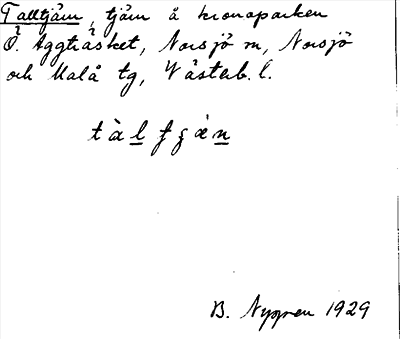 Talltjärn, tjärn å kronoparken
Ö. Aggträsket, Norsjö sn, Norsjö
och Malå tg, Västerb. l.
B. Nygren 1929